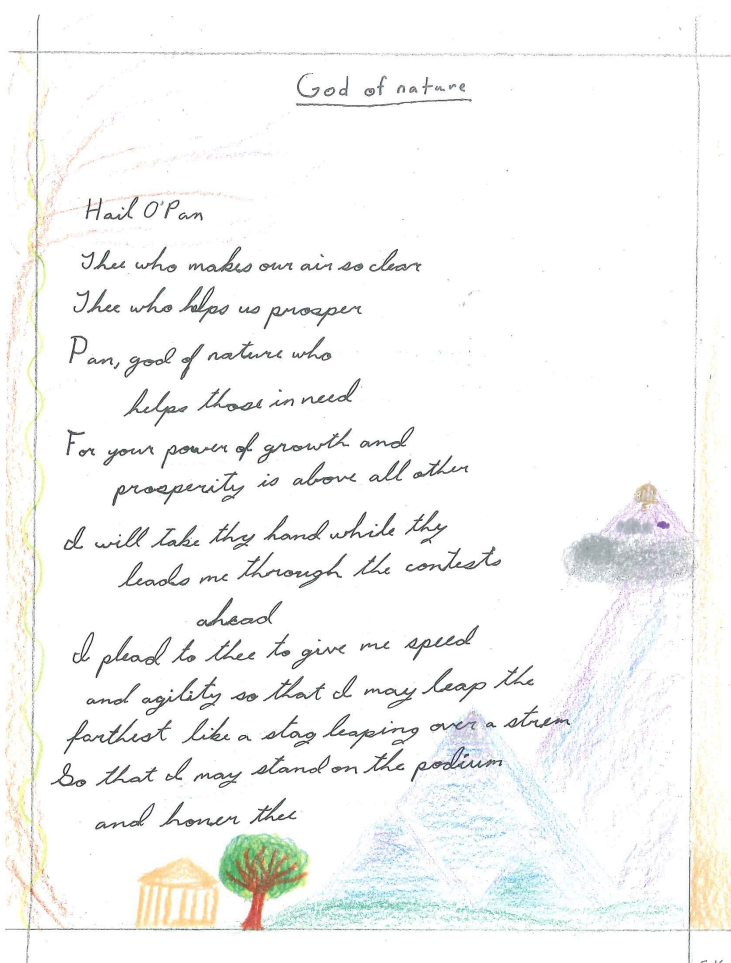 God of nature
Hail O'Pan
Thee who makes our air so clear
Thee who helps us prosper
Pan, god of nature who
helps those in need
For your power of growth and
prosperity is above all other
I will take thy hand while thy
leads me through the contests
ahead
I plead to thee to give me speed
and agility so that I may leap the
farthest like a stag leaping over a strem
So that I may stand on the podium
and honer thee